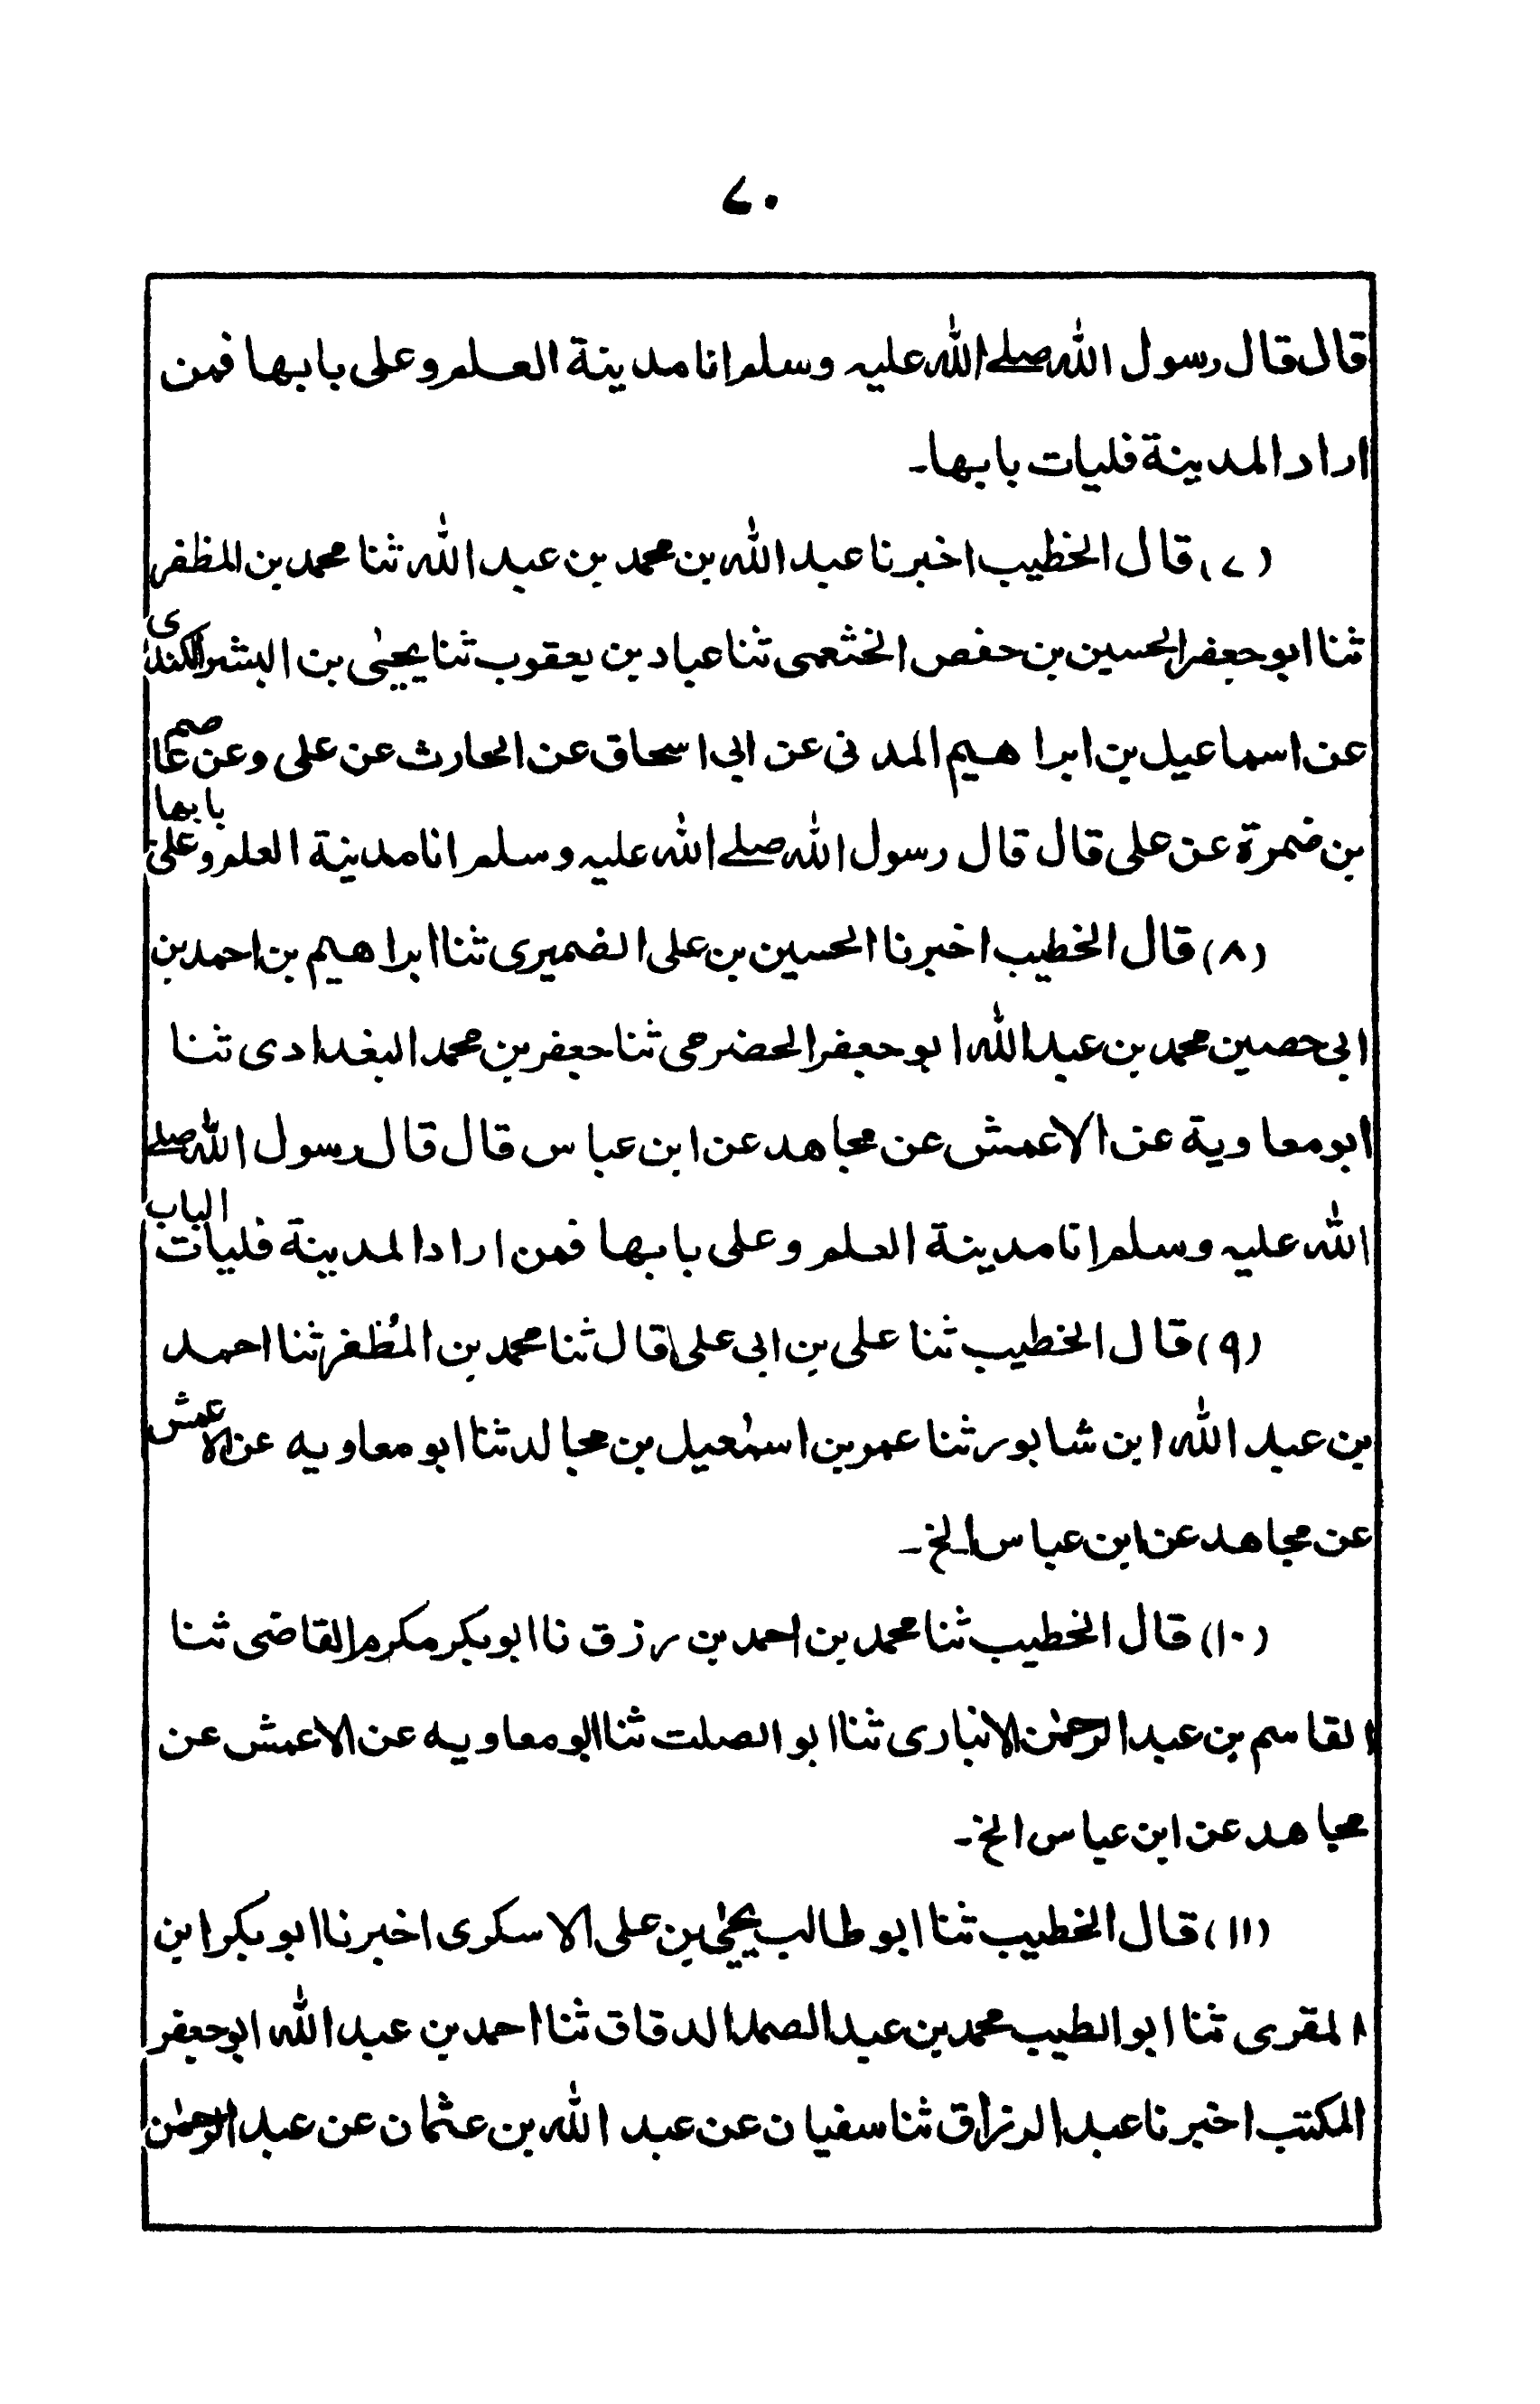 ۷۰
قال قال رسول الله صلے الله علیہ وسلم انا مدینة العلم وعلی بابها فمن
اراد المدینة فلیات بابها۔
(۷) قال الخطیب اخبرنا عبد الله بن محمد بن عبد الله ثنا محمد بن المظفر
ثنا ابو جعفر الحسین بن حفص الخثعمی ثنا عباد بن یعقوب ثنا یحیٰی بن البشر الکندی
عن اسماعیل بن ابراهیم المدنی عن ابی اسحاق عن الحارث عن علی وعن عاصم
بن ضمرة عن علی قال قال رسول الله صلے الله علیہ وسلم انا مدینة العلم وعلی بابها
(۸) قال الخطیب اخبرنا الحسین بن علی الضمیری ثنا ابراهیم بن احمد بن
ابی حصین محمد بن عبد الله ابو جعفر الحضرمی ثنا جعفر بن محمد البغدادی ثنا
ابو معاویة عن الاعمش عن مجاهد عن ابن عباس قال قال رسول الله صلے
الله علیہ وسلم انا مدینة العلم وعلی بابها فمن اراد المدینة فلیات الباب
(۹) قال الخطیب ثنا علی بن ابی علی قال ثنا محمد بن المُظفر ثنا احمد
بن عبد الله ابن شابور ثنا عمر بن اسمٰعیل بن مجالد ثنا ابو معاویه عن الاعمش
عن مجاهد عن ابن عباس الخ۔
(۱۰) قال الخطیب ثنا محمد بن احمد بن رزق نا ابوبکر مکرم القاضی ثنا
القاسم بن عبد الرحمٰن الانباری ثنا ابو الصلت ثنا ابو معاویه عن الاعمش عن
مجاهد عن ابن عباس الخ۔
(۱۱) قال الخطیب ثنا ابو طالب یحیٰی بن علی الاسکری اخبرنا ابوبکر ابن
المقری ثنا ابو الطیب محمد بن عبد الصمد الدقاق ثنا احمد بن عبد الله ابو جعفر
المکتب اخبرنا عبد الرزاق ثنا سفیان عن عبد الله بن عثمان عن عبد الرحمٰن